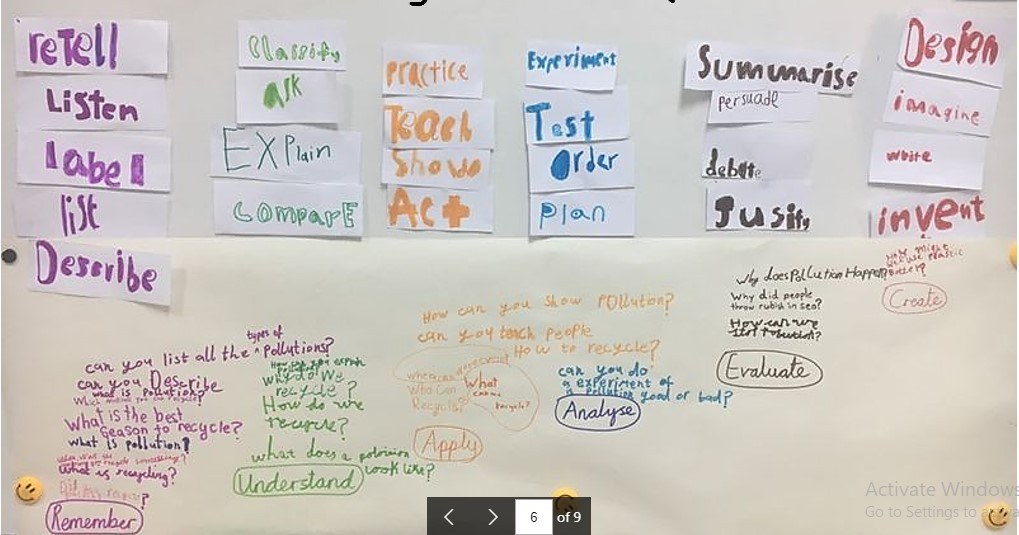 reTell
Listen
label
list
Describe
Classify
ask
EXPlain
compare
practice
Teach
Show
Act
Experiment
Test
Order
plan
Summarise
persuade
debate
Jusify
Design
imagine
write
invent
can you list all the types of pollutions?
can you Describe
what is pollution?
What is the best
season to recycle?
what is pollution?
what is recycling?
Remember
How can you explain
why do we
recycle?
How do we
recycle?
what does a
look like?
Understand
How can you show Pollution?
can you teach people
How to recycle?
Who can
Recycle?
What
can
recycle?
Apply
can you do
a experiment of
pollution good or bad?
Analyse
why does Pollution Happen?
Why did people
throw rubish in sea?
How can we
Evaluate
How might
we use plastic
better?
Create
6 of 9
Activate Windows
Go to Settings to